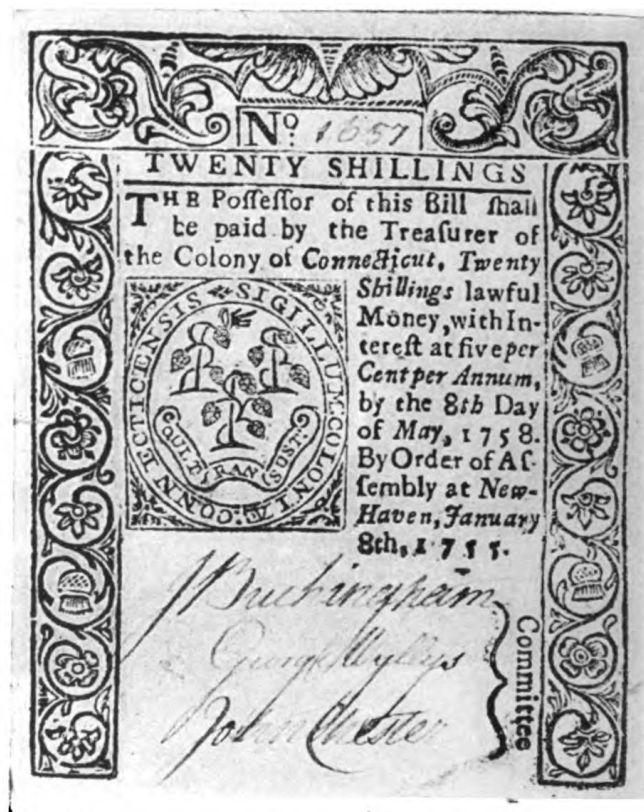 No. 1657
TWENTY SHILLINGS
THE Poſſeſſor of this Bill ſhall
be paid by the Treaſurer of
the Colony of Connecticut, Twenty
Shillings lawful
Money, with In-
tereſt at five per
Cent per Annum,
by the 8th Day
of May, 1758.
By Order of Aſ-
ſembly at New-
Haven, January
8th, 1755.
SIGILLUM: COLONIÆ: CONNECTICENSIS
SUST:
J Buckingham
George Wyllys
John Chester
Committee